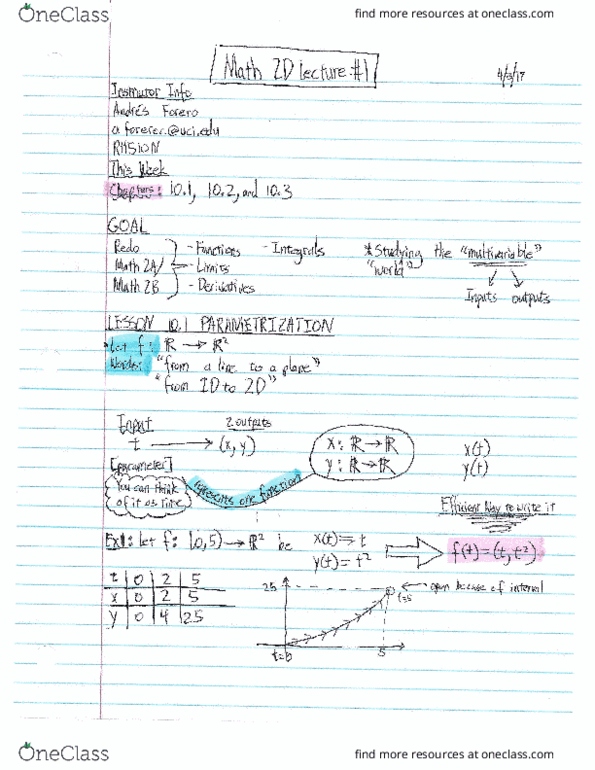 OneClass
find more resources at oneclass.com
Math 2D lecture #1
4/3/17
Instructor Info
Andrés Forero
This Week
Chapters: 10.1, 10.2, and 10.3
GOAL
Redo - Functions - Integrals
Math 2A/ - Limits
Math 2B - Derivatives
*Studying the "multivariable"
"world"
Inputs outputs
LESSON 10.1 PARAMETRIZATION
Let f: ℝ → ℝ²
Words: "from a line to a plane"
"from 1D to 2D"
Input 2 outputs
t → (x, y)
[parameter]
You can think
of it as time
represents one function
x: ℝ → ℝ
y: ℝ → ℝ
x(t)
y(t)
Efficient Way rewrite it
Ex1: Let f: [0,5) → ℝ² be x(t)=t
y(t)=t²
f(t)=(t,t²)
t 0 2 5
x 0 2 5
y 0 4 25
25
open because of interval
t=5
t=0
5
OneClass
find more resources at oneclass.com